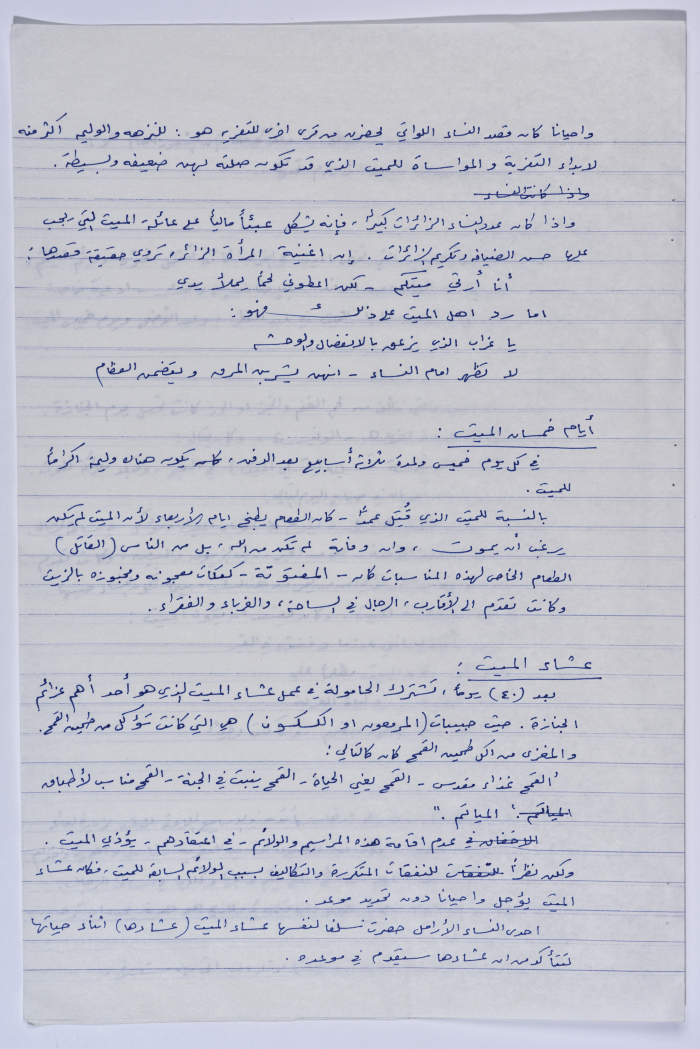 واحيانا كان قصد النساء اللواتي يحضرن من قرى اخرى للتعزيه هو : للنزهه والوليمه اكثر منه
لابداء التعزية والمواساة للميت الذي قد تكون صلته بهن ضعيفه وبسيطة .
واذا كانت النساء
واذا كان عدد النساء الزائرات كبيراً ، فإنه يشكل عبئاً مالياً على عائلة الميت التي يجب
عليها حسن الضيافه وتكريم الزائرات . إن اغنية المرأة الزائره تروي حقيقة قصدها :
أنا أرثي ميتكم - لكن اعطوني لحماً يملأ يدي
اما رد اهل الميت على ذلك فهو :
يا غراب الذي يزعق بالانفصال والوحشه
لا تظهر امام النساء - انهن يشربن المرق ويقضمن العظام
أيام خمسان الميت :
في كل يوم خميس ولمدة ثلاثة أسابيع بعد الدفن ، كان يكون هناك وليمة اكراماً
للميت .
بالنسبة للميت الذي قُتل عمداً - كان الطعام يطبخ ايام الأربعاء لأن الميت لم يكن
يرغب أن يموت ، وان وفاته لم تكن من الله ، بل من الناس (القاتل)
الطعام الخاص لهذه المناسبات كان - المفتوتة - كعكات معجونه ومخبوزه بالزيت
وكانت تقدم الى الأقارب ، الرجال في الساحة ، والغرباء والفقراء .
عشاء الميت :
بعد (٤٠) يوماً ، تشترك الحامولة في عمل عشاء الميت الذي هو أحد أهم عزائم
الجنازة . حيث حبيبات (المرمعون او الكسكسون) هي التي كانت تؤكل من طحين القمح .
والمغزى من اكل طحين القمح كان كالتالي :
"القمح غذاء مقدس - القمح يعني الحياة - القمح ينبت في الجنة - القمح مناسب لأطباق
المياتم . المياتم . "
في عدم اقامة هذه المراسيم والولائم - في اعتقادهم - يؤذي الميت .
ولكن نظراً للنفقات للنفقات المتكررة والتكاليف بسبب الولائم السابقة للميت ، فكان عشاء
الميت يؤجل واحيانا دون تحديد موعد .
احدى النساء الأرامل حضرت سلفا لنفسها عشاء الميت (عشاءها) اثناء حياتها
لتتأكد من ان عشاءها سيقدم في موعده .